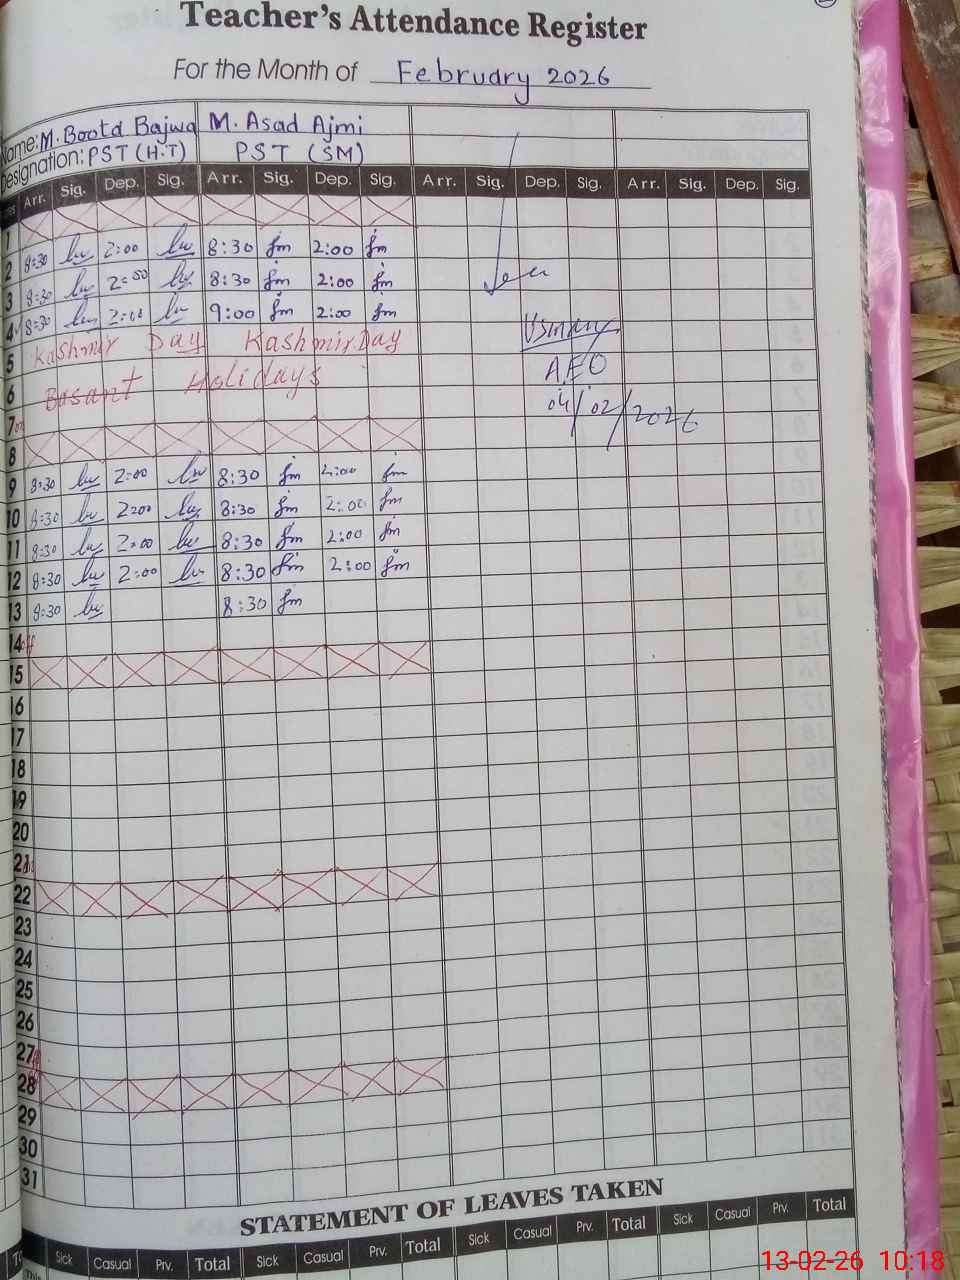 Teacher's Attendance Register
For the Month of February 2026
Name: M. Boota Bajwa M. Asad Ajmi
Designation: PST (H.T) PST (SM)
Arr. Sig. Dep. Sig. Arr. Sig. Dep. Sig. Arr. Sig. Dep. Sig. Arr. Sig. Dep. Sig.
1
2 8:30 2:00 8:30 2:00
3 8:30 2:00 8:30 2:00
4 8:30 2:00 9:00 2:00
5 Kashmir Day Kashmir Day
6 Basant Holidays
A.E.O
7
04/02/2026
8
9 8:30 2:00 8:30 2:00
10 8:30 2:00 8:30 2:00
11 8:30 2:00 8:30 2:00
12 8:30 2:00 8:30 2:00
13 8:30 8:30
14 off
15
16
17
18
19
20
21
22
23
24
25
26
27
28
29
30
31
STATEMENT OF LEAVES TAKEN
Sick Casual Prv. Total Sick Casual Prv. Total Sick Casual Prv. Total Sick Casual Prv. Total
13-02-26 10:18